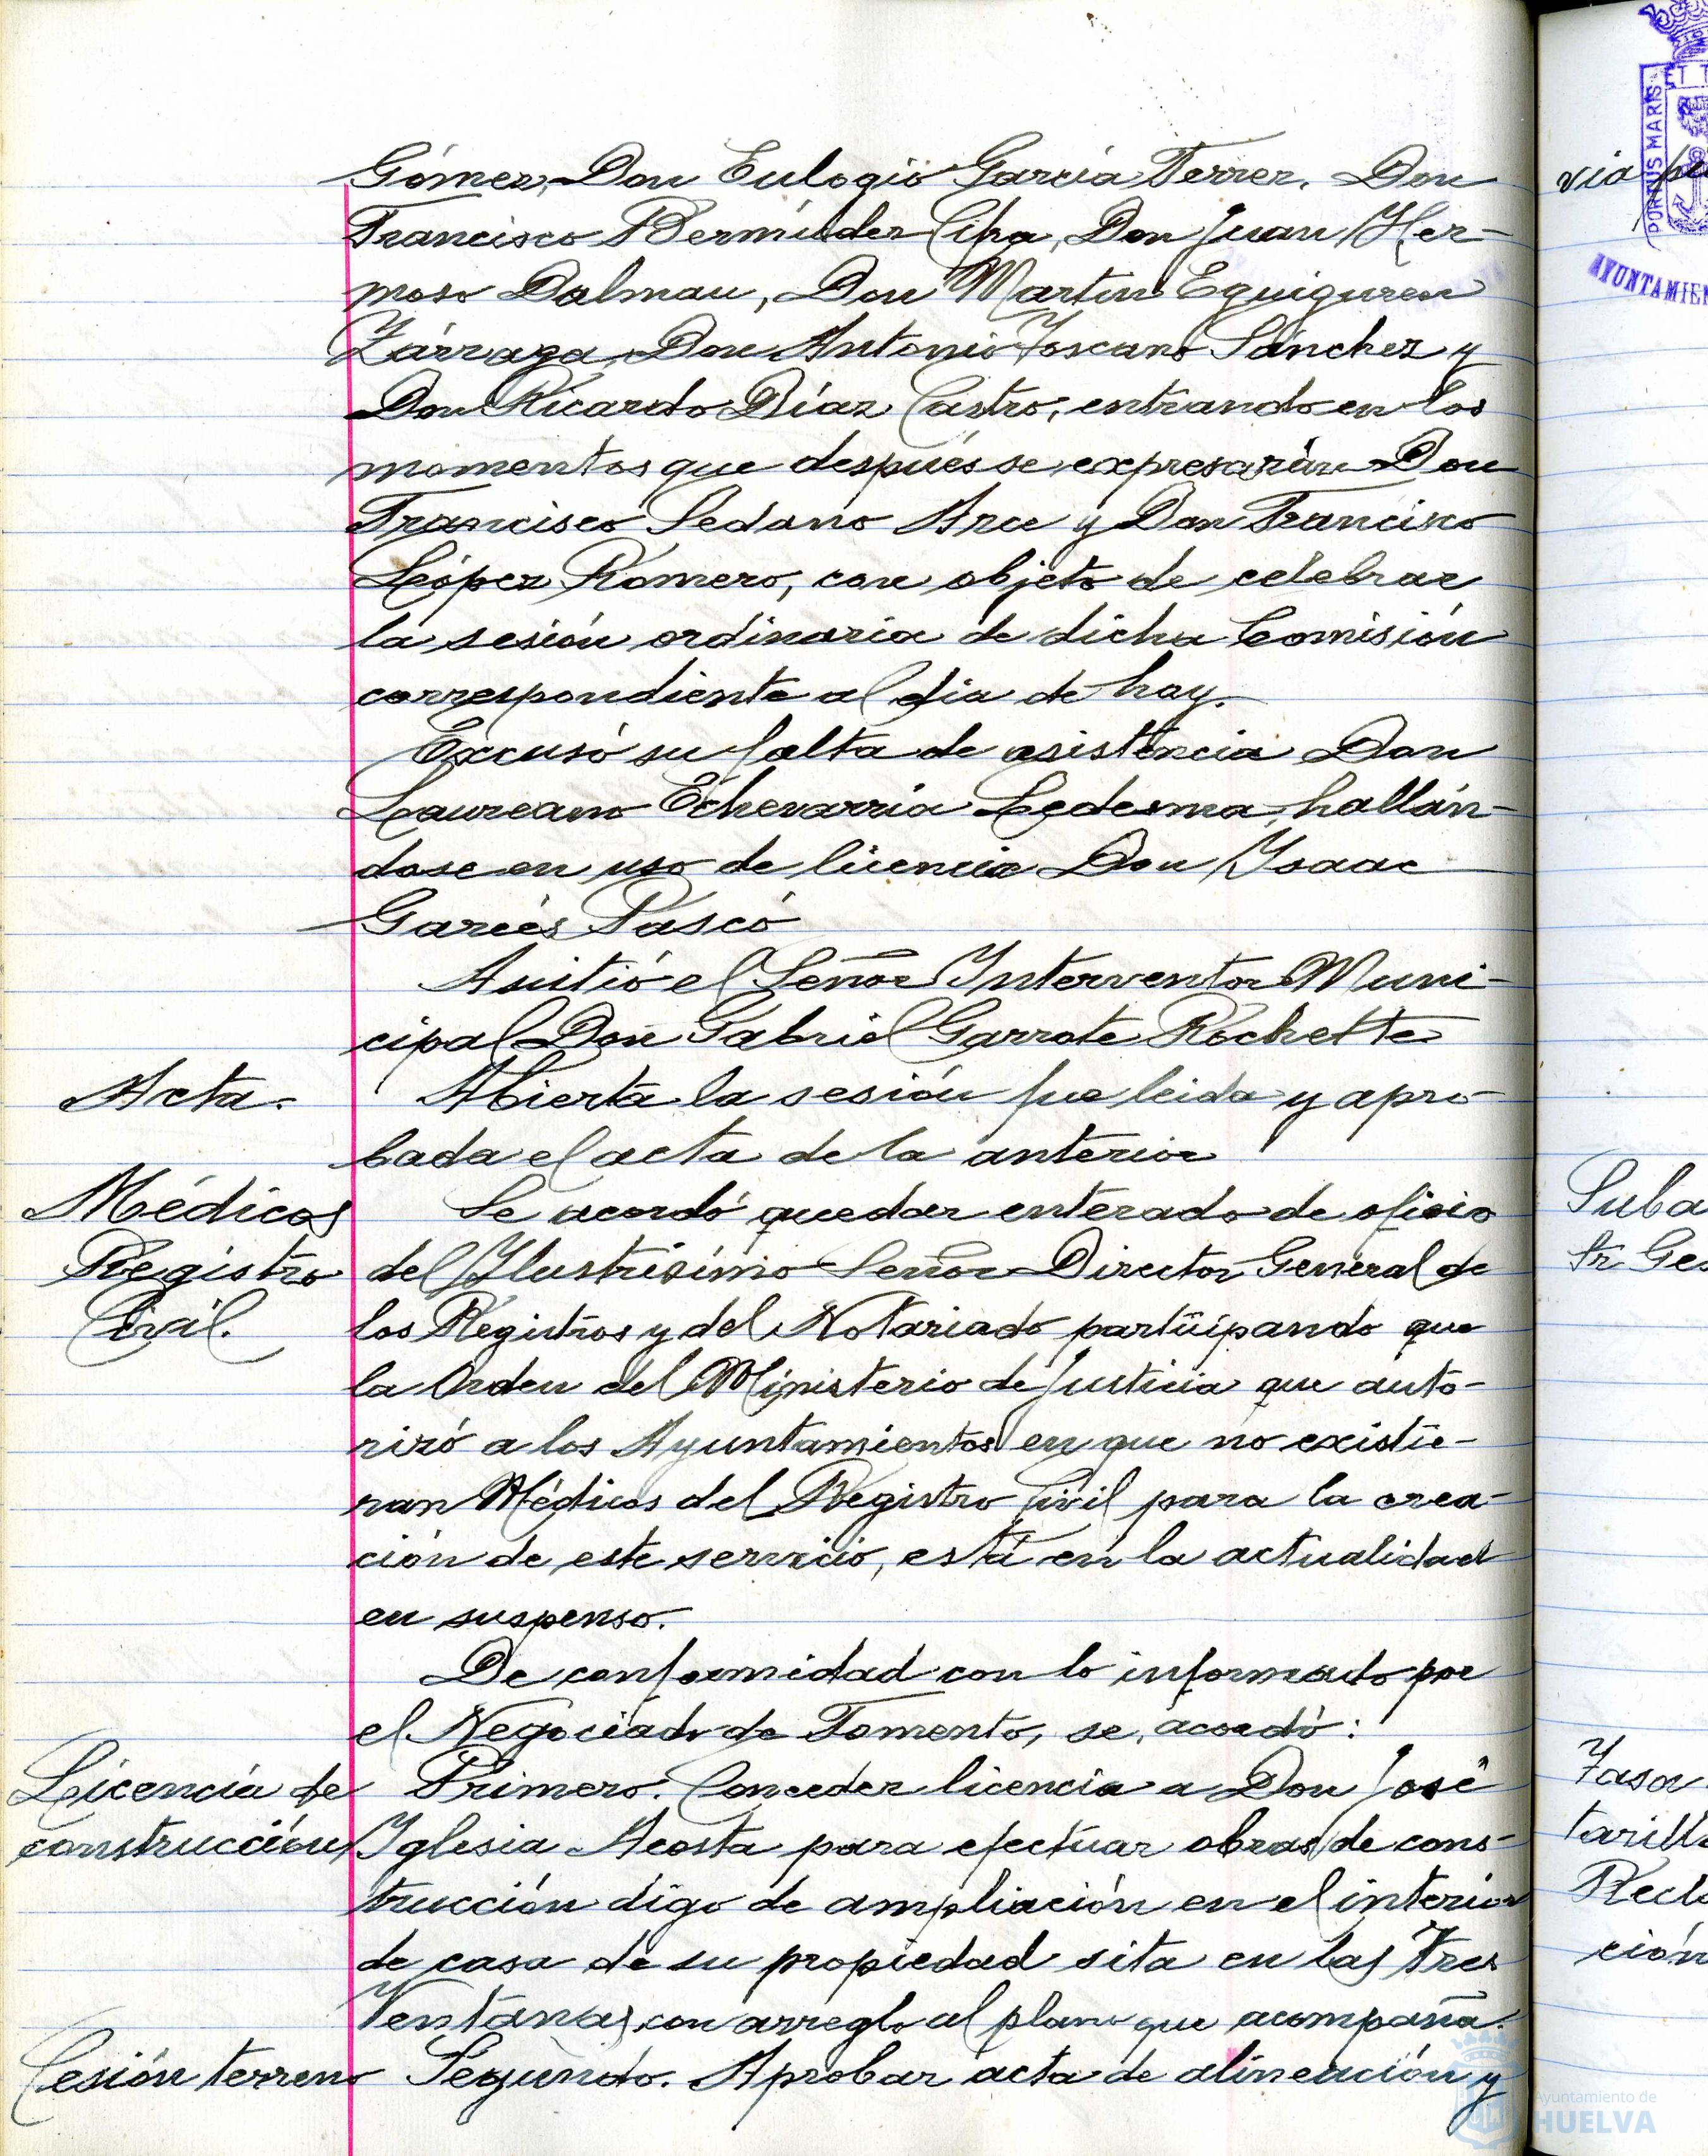 Gómez, Don Eulogio García Ferrer, Don
Francisco Bermúdez Cifra, Don Juan Her-
moso Dalmau, Don Martin Eguiguren
Zárraga, Don Antonio Toscano Sánchez y
Don Ricardo Díaz Castro, entrando en los
momentos que después se expresarán Don
Francisco Sedano Arce y Don Francisco
López Romero, con objeto de celebrar
la sesión ordinaria de dicha Comisión
correspondiente al dia de hoy.
Excusó su falta de asistencia Don
Laureano Echevarria Ledesma, hallán-
dose en uso de licencia Don Ysaac
Garcés Pascó
Asistió el Señor Ynterventor Muni-
cipal Don Gabriel Garrote Rochette
Acta.
Abierta la sesión fue leida y apro-
bada el acta de la anterior
Médicos
Registro
Civil.
Se acordó quedar enterado de oficio
del Ylustrísimo Señor Director General de
los Registros y del Notariado participando que
la Orden del Ministerio de Justicia que auto-
rizó a los Ayuntamientos en que no existie-
ran Médicos del Registro Civil para la crea-
ción de este servicio, está en la actualidad
en suspenso.
De conformidad con lo informado por
el Negociado de Fomento, se acordó:
Licencia de
construcción
Primero. Conceder licencia a Don José
Yglesia Acosta para efectuar obras de cons-
trucción digo de ampliación en el interior
de casa de su propiedad sita en las Tres
Ventanas, con arreglo al plano que acompaña.
Cesión terreno
Segundo. Aprobar acta de alineación y
via
PORTUS MARIS ET T
AYUNTAMIEN
Suba
Sr Ges
Tasa
tarilla
Recla
ción
Ayuntamiento de
HUELVA